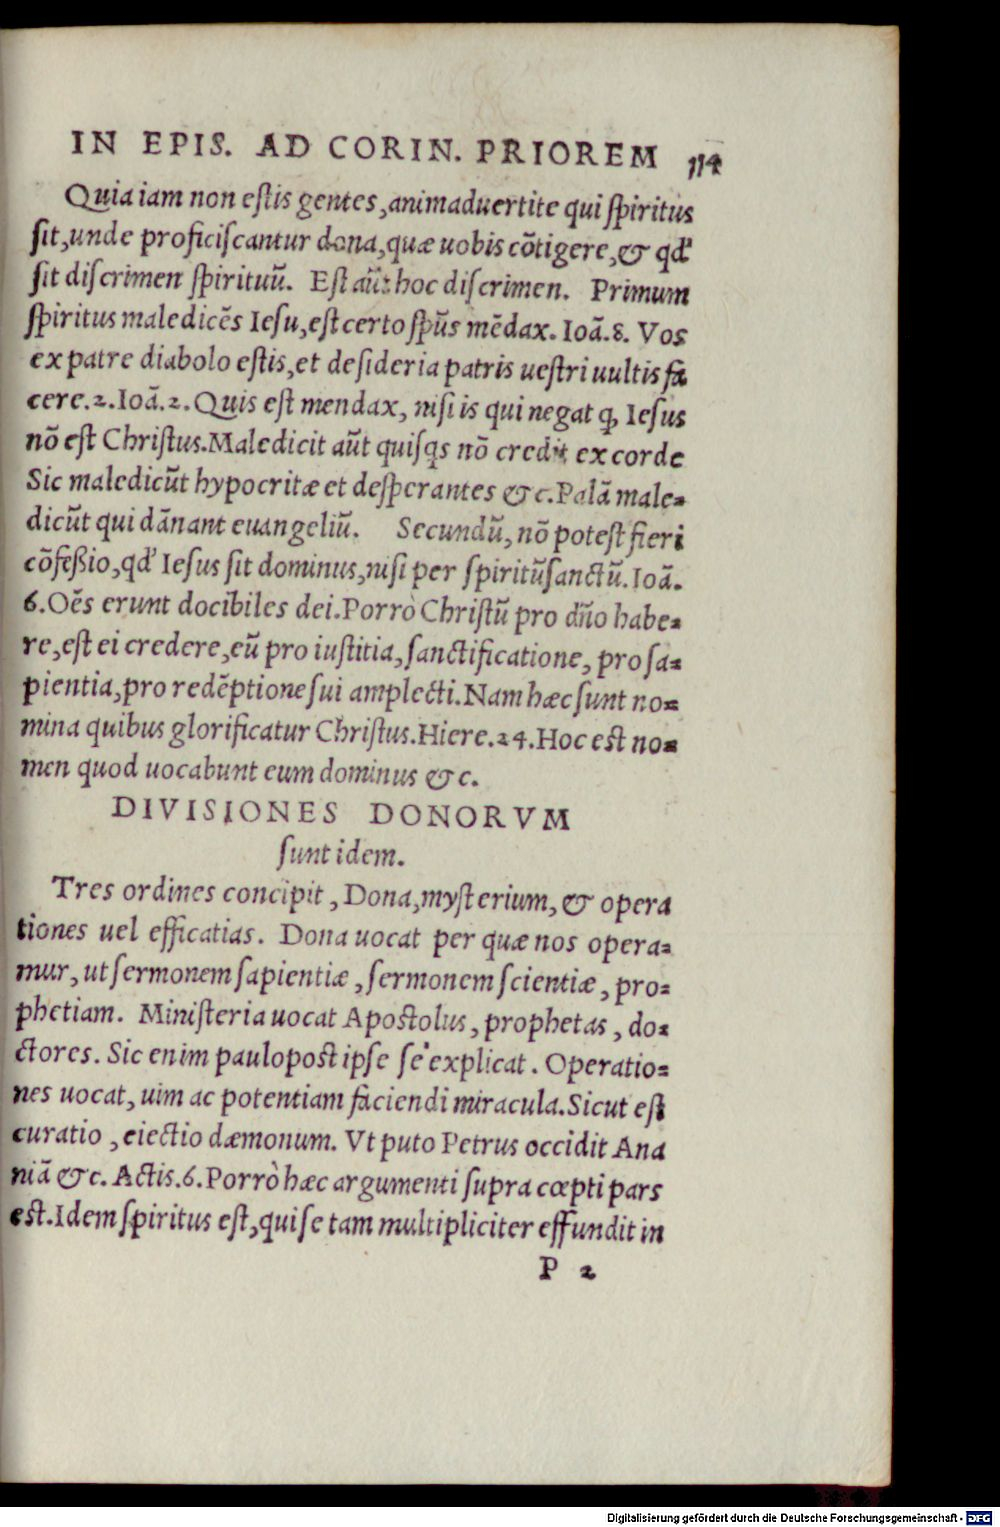 IN EPIS. AD CORIN. PRIOREM 114
Quia iam non eſtis gentes, animaduertite qui ſpiritus
ſit, unde proficiſcantur dona, quæ uobis cōtigere, & qđ
ſit diſcrimen ſpirituū. Eſt aūt hoc diſcrimen. Primum
ſpiritus maledicēs Ieſu, eſt certo ſpūs mēdax. Ioā.8. Vos
ex patre diabolo eſtis, et deſideria patris ueſtri uultis fa
cere.2.Ioā.2.Quis eſt mendax, niſi is qui negat ꝙ Ieſus
nō eſt Chriſtus.Maledicit aūt quiſqs nō credit ex corde
Sic maledicūt hypocritæ et deſperantes &c.Palā male⸗
dicūt qui dānant euangeliū. Secundū, nō poteſt fieri
cōfeßio, qđ Ieſus ſit dominus, niſi per ſpiritūſanctū.Ioā.
6.Oēs erunt docibiles dei.Porrò Chriſtū pro dño habe⸗
re, eſt ei credere, eū pro iuſtitia, ſanctificatione, pro ſa⸗
pientia, pro redēptione ſui amplecti.Nam hæc ſunt no⸗
mina quibus glorificatur Chriſtus.Hiere.24.Hoc est no⸗
men quod uocabunt eum dominus &c.
DIVISIONES DONORVM
ſunt idem.
Tres ordines concipit, Dona, myſterium, & opera
tiones uel efficatias. Dona uocat per quæ nos opera⸗
mur, ut ſermonem ſapientiæ, ſermonem ſcientiæ, pro⸗
phetiam. Miniſteria uocat Apostolus, prophetas, do⸗
ctores. Sic enim paulopost ipſe ſe explicat. Operatio⸗
nes uocat, uim ac potentiam faciendi miracula.Sicut eſt
curatio, eiectio dæmonum. Vt puto Petrus occidit Ana
niā &c. Actis.6.Porrò hæc argumenti ſupra cœpti pars
est.Idem ſpiritus eſt, qui ſe tam multipliciter effundit in
P 2
Digitalisierung gefördert durch die Deutsche Forschungsgemeinschaft - DFG